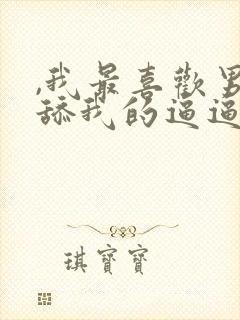 ,我最喜歡男
舔我的逼逼
琪寶寶